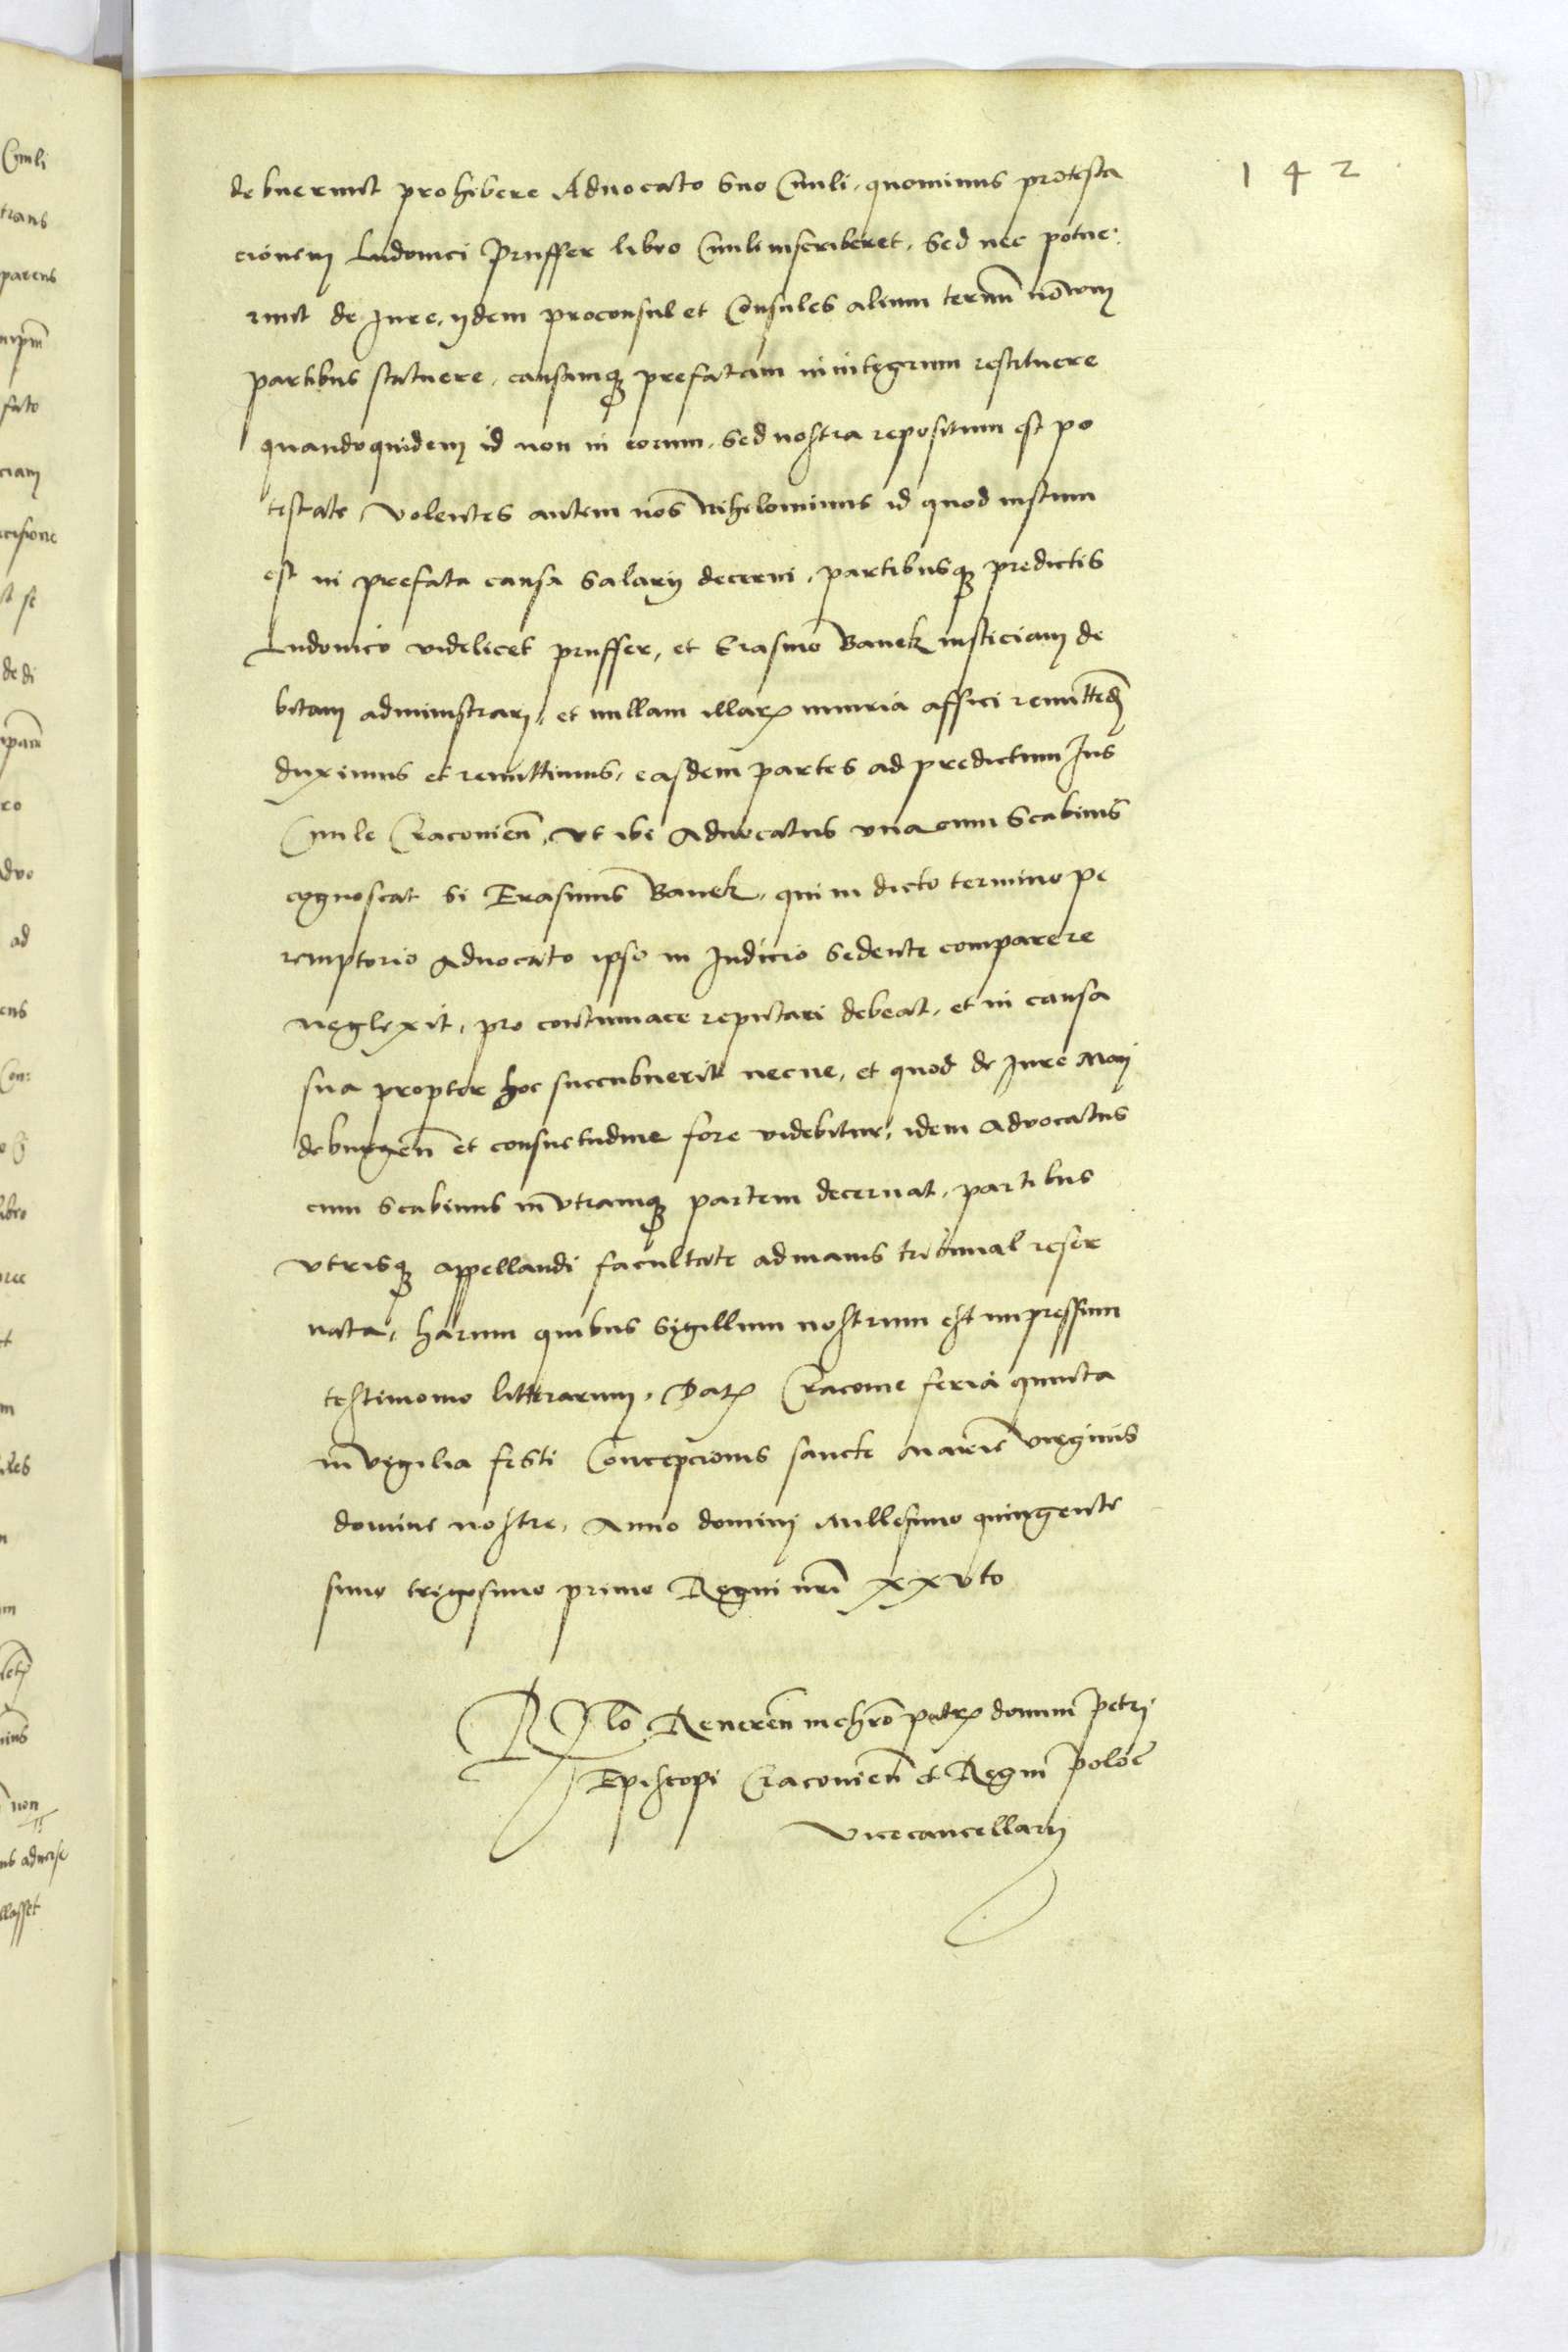 142
debuerunt prohibere Aduocato suo Ciuili, quominus protesta
cionem Ludouici Pruffer libro Ciuili inscriberet, Sed nec potue:
runt de Iure, ijdem proconsul et Consules alium termin̄
partibus statuere, causamq₃ prefatam in integrum restituere
quandoquidem id non in eorum, Sed nostra repositum est po
testate, Volentes autem nos Nihilominus id quod iustum
est in prefata causa Salarij decerni, partibusq₃ predictis
Ludouico videlicet pruffer, et Erasmo Banek iusticiam de
bitam administrari, et nullam illarꝝ iniuria affici remittēd
duximus et remittimus, easdem partes ad predictum Ius
Ciuile Cracouien̄, vt ibi Aduocatus vna cum Scabinis
cognoscat si Erasmus Banek, qui in dicto termino pe
remptorio Aduocato ipso in Iudicio sedente comparere
neglexit, pro contumace reputari debeat, et in causa
sua propter hoc succubuerit necne, et quod de Iure May
deburgen̄ et consuetudine fore videbitur, idem Aduocatus
cum Scabinis in vtramq₃ partem decernat, partibus
vtrisq₃ appellandi facultate ad maius tribunal reser
uata, harum quibus Sigillum nostrum est impressum
testimonio litterarum, Datꝝ Cracouie feria quinta
in vigilia festi Concepcionis sancte Marie virginis
domine nostre, Anno domini Millesimo quingente
simo trigesimo primo Regni nr̄i xxvto
Rlō Reueren̄ in chr̄o patrꝝ domini Petri
Episcopi Cracouien̄ et Regni Polōe
Vicecancellarij